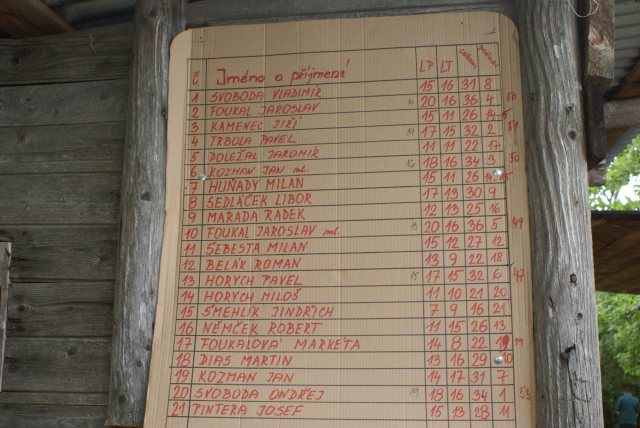 Č. Jméno a příjmení LP LT celkem pořadí
1 SVOBODA VLADIMÍR 15 16 31 8
2 FOUKAL JAROSLAV 14 20 16 36 4 50
3 KAMENEC JIŘÍ 15 11 26
4 TRBOLA PAVEL 19 17 15 32 2 51
5 DOLEŽAL JAROMÍR 11 11 22 17
6 KOZMAN JAN ml. 16 18 16 34 3 50
7 HUŇADY MILAN 15 11 26
8 SEDLÁČEK LIBOR 17 13 30 9
9 MARADA RADEK 12 13 25 16
10 FOUKAL JAROSLAV ml. 13 20 16 36 5 49
11 ŠEBESTA MILAN 15 12 27 12
12 BELÁK ROMAN 13 9 22 18
13 HORYCH PAVEL 15 17 15 32 6 47
14 HORYCH MILOŠ 11 10 21 20
15 ŠMEHLÍK JINDŘICH 7 9 16 21
16 NĚMČEK ROBERT 11 15 26 13
17 FOUKALOVÁ MARKÉTA 14 8 22 19
18 DIAS MARTIN 13 16 29 10
19 KOZMAN JAN 14 17 31 7
20 SVOBODA ONDŘEJ 19 18 16 34 1 53
21 PINTERA JOSEF 15 13 28 11